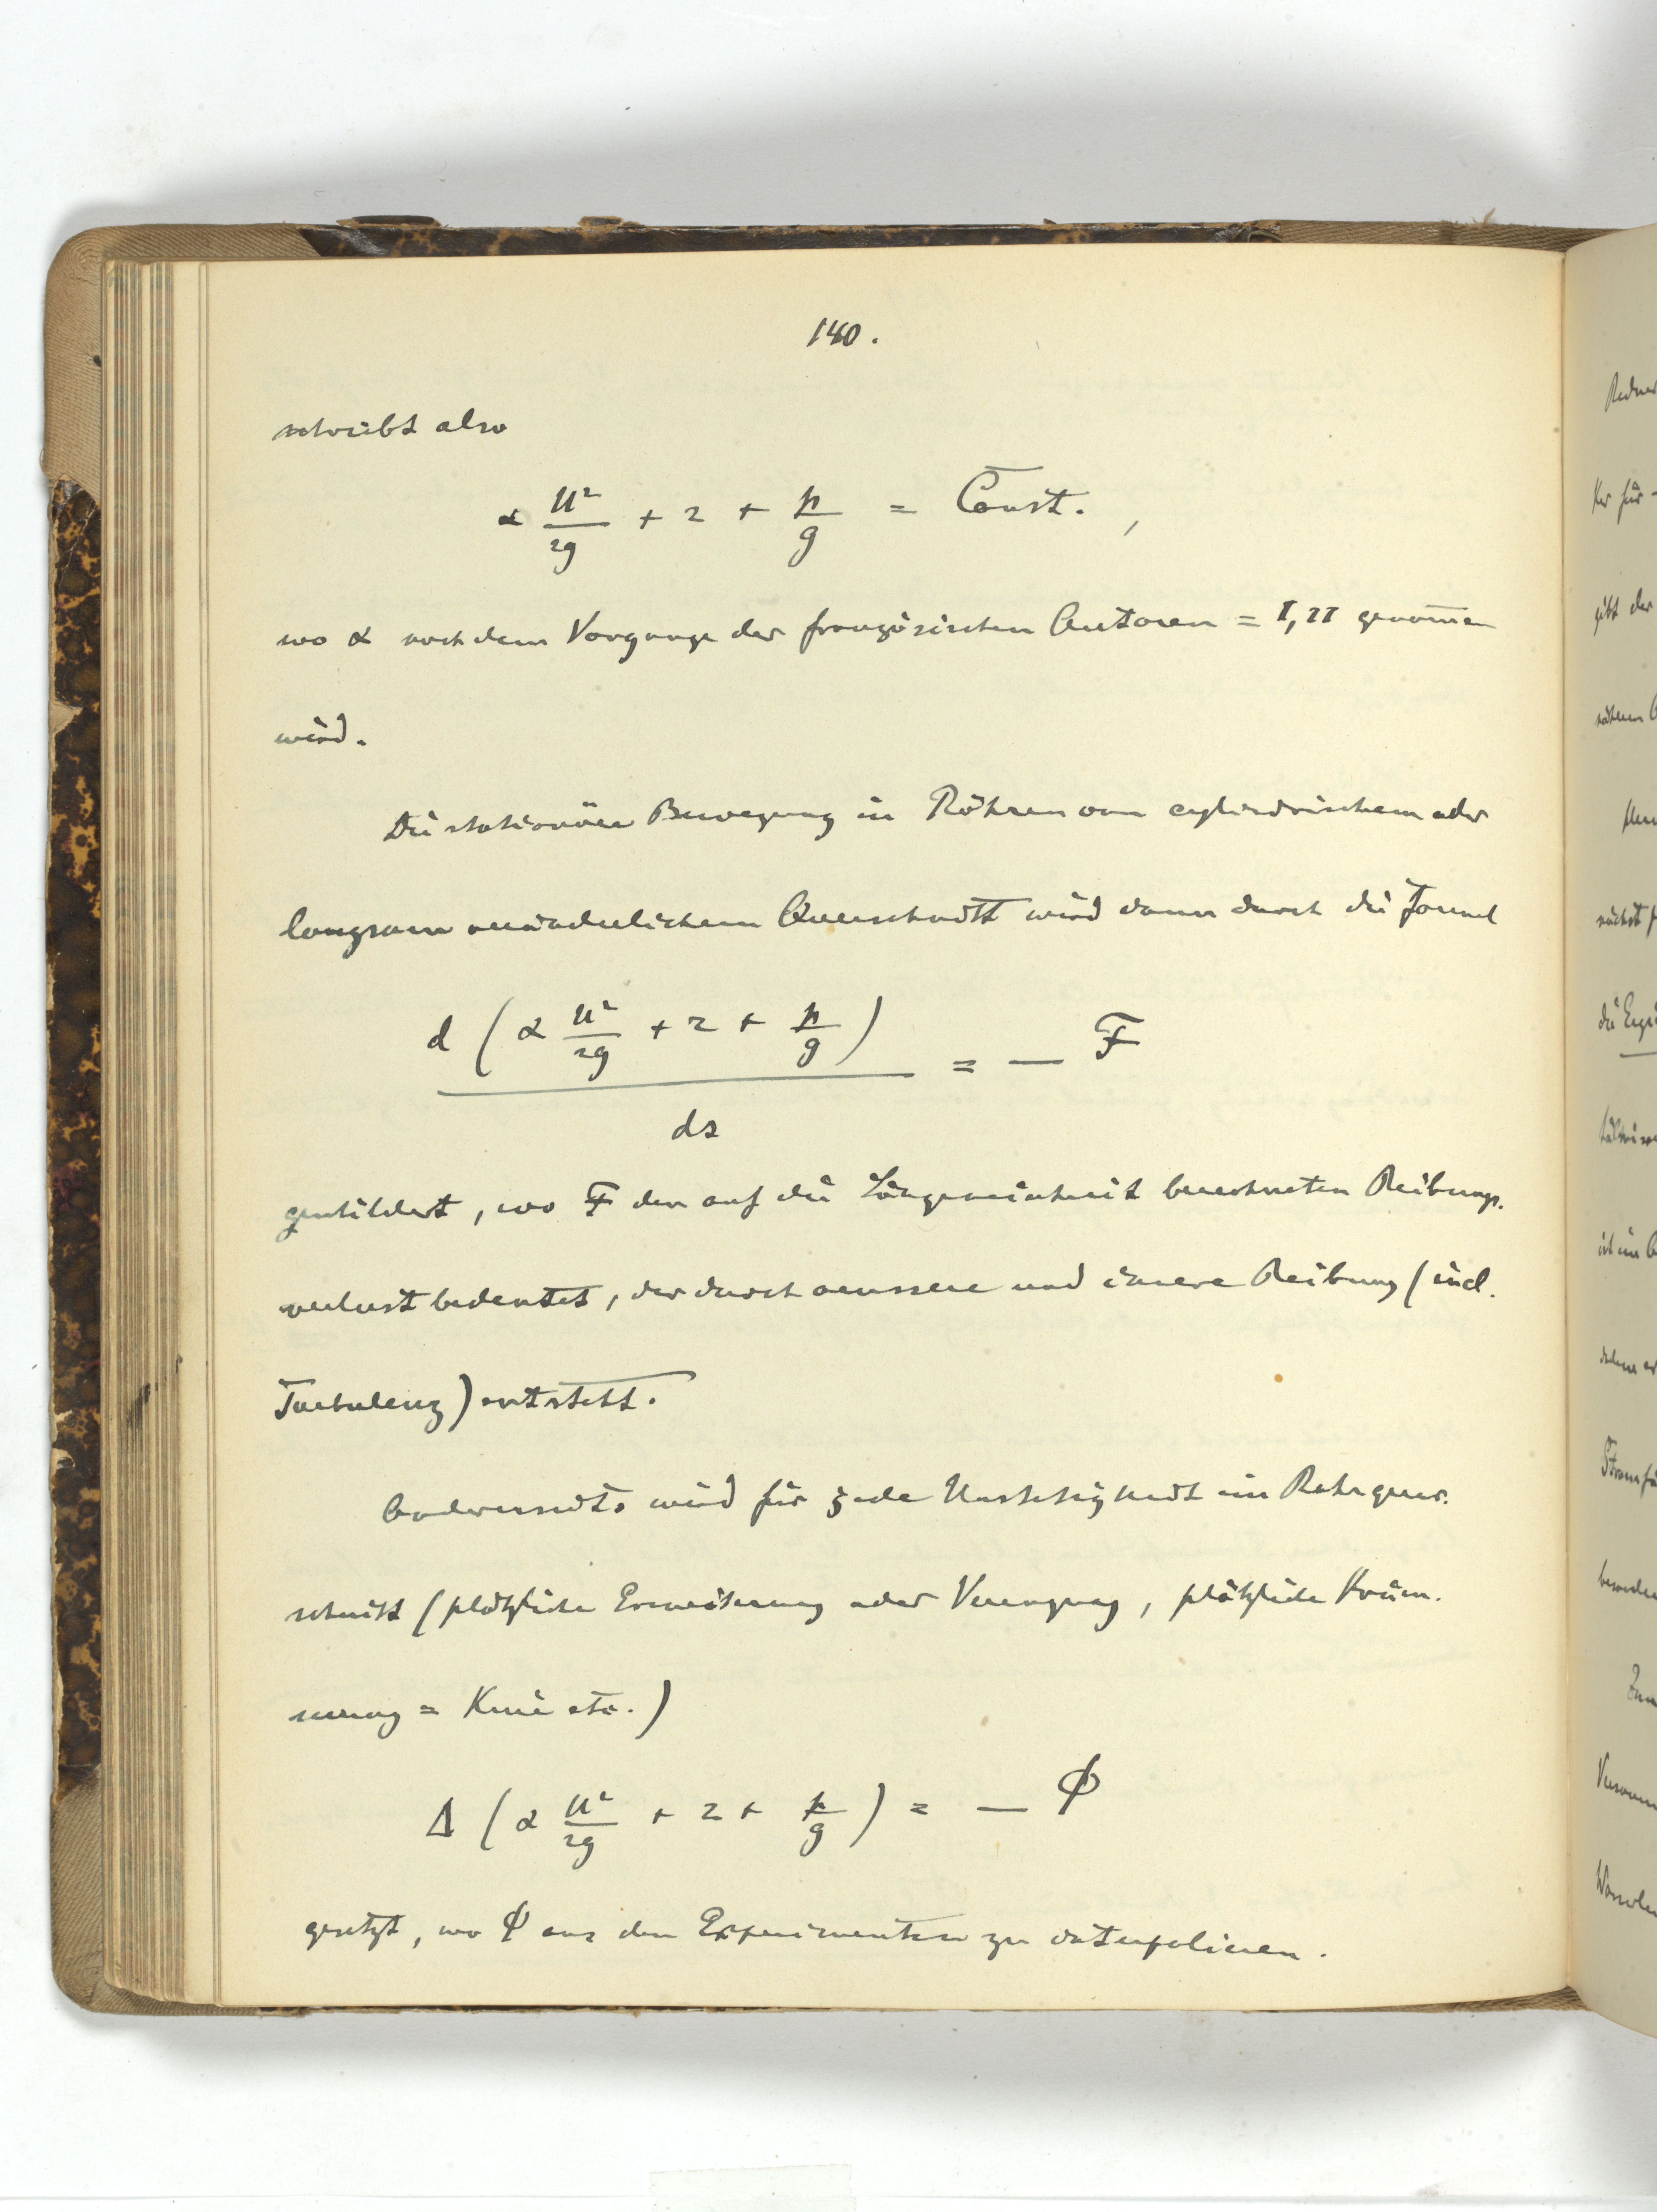 140.
schreibt also
α u²/2g + z + p/g = Const. ,
wo α nach dem Vorgange der französischen Autoren = 1,11 genommen
wird.
Die stationäre Bewegung in Röhren von cylindrischem oder
langsam veränderlichem Querschnitt wird dann durch die Formel
d ( α u²/2g + z + p/g ) / ds = — F
geschildert, wo F den auf die Längeneinheit berechneten Reibungs-
verlust bedeutet, der durch aeussere und innere Reibung (incl.
Turbulenz) entsteht.
Anderseits wird für jede Unstetigkeit im Rohrquer-
schnitt (plötzliche Erweiterung oder Verengung, plötzliche Krüm-
mung = Knie etc.)
Δ ( α u²/2g + z + p/g ) = — Φ
gesetzt, wo Φ aus den Experimenten zu interpolieren.